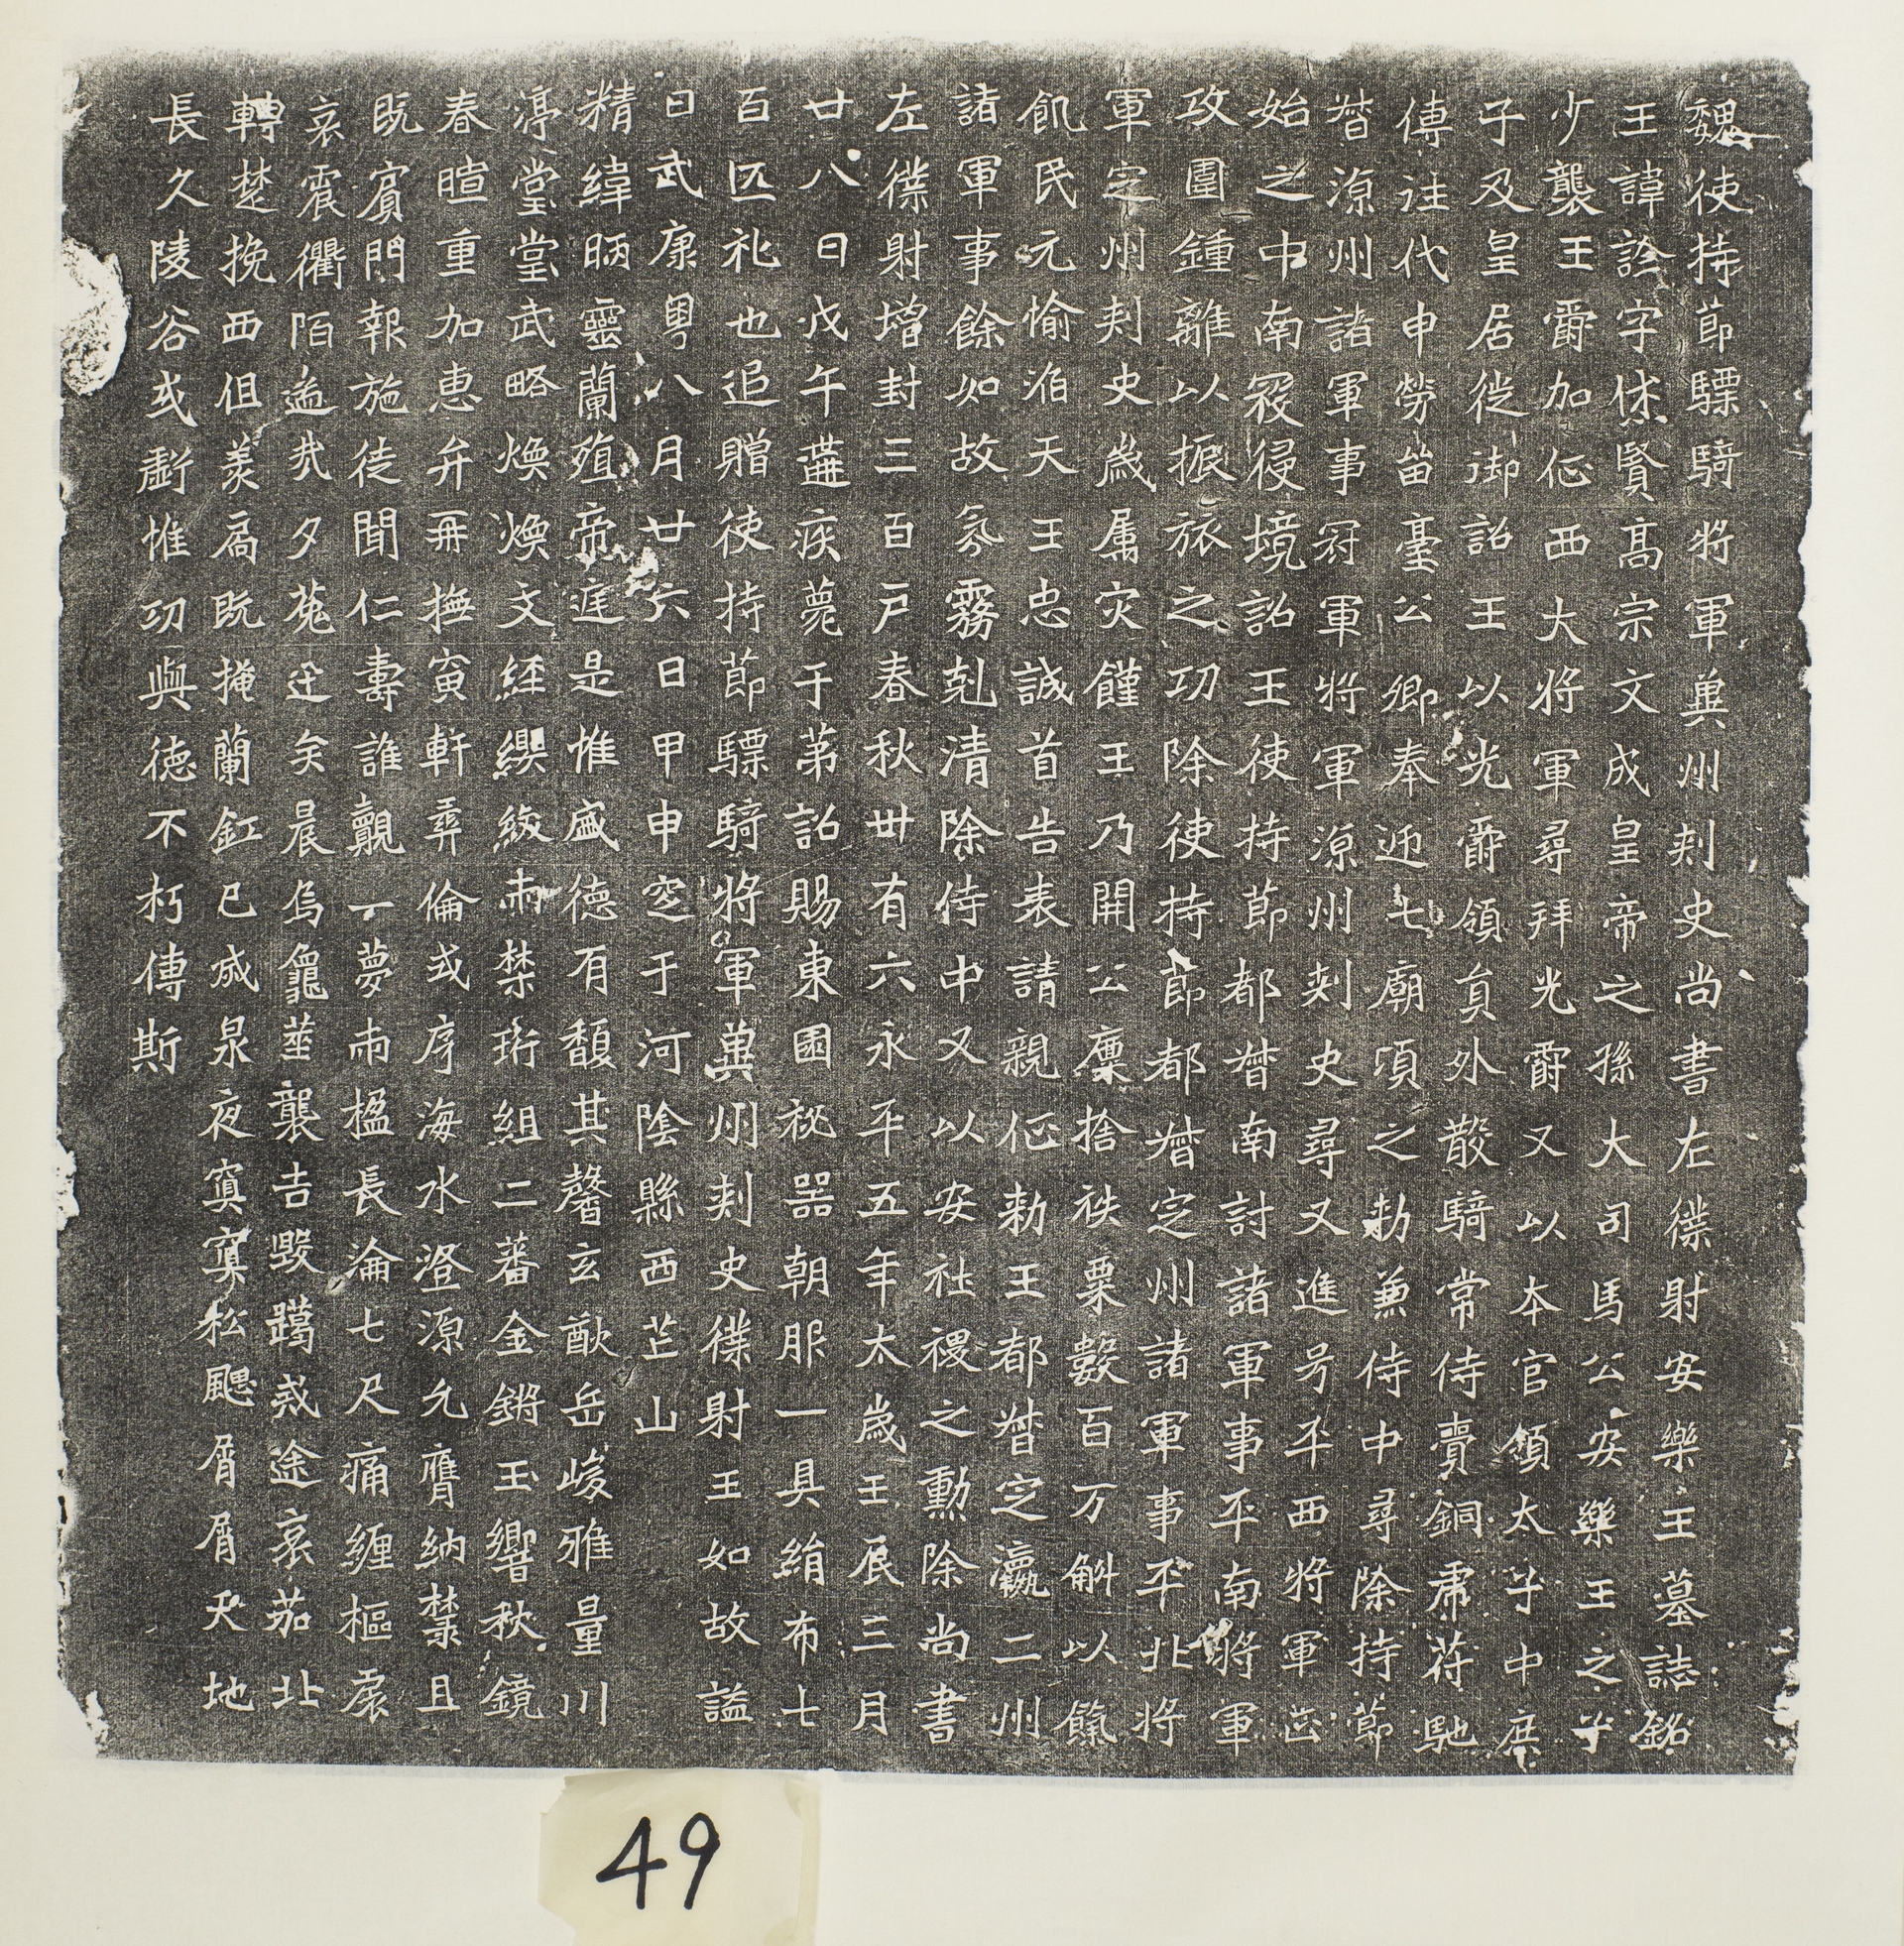 魏使持節驃騎將軍冀州刾史尚書左僕射安樂王墓誌銘
王諱詮字休賢高宗文成皇帝之孫大司馬公安樂王之子
少襲王爵加征西大將軍尋拜光爵又以本官領太子中庶
子及皇居徙御詔王以光爵領員外散騎常侍賷銅虎苻馳
傳註代申勞留臺公卿奉迎七廟頃之勑兼侍中尋除持節
督涼州諸軍事冠軍將軍涼州刾史尋又進号平西將軍正
始之中南寇侵境詔王使持節都督南討諸軍事平南將軍
攻圍鍾離以振旅之功除使持節都督定州諸軍事平北將
軍定州刾史歲属灾饉王乃開公廩捨秩粟數百万斛以餼
飢民元愉滔天王忠誠首告表請親征勑王都督定瀛二州
諸軍事餘如故氛霧剋清除侍中又以安社禝之勳除尚書
左僕射增封三百戶春秋卅有六永平五年太歲壬辰三月
廿八日戊午遘疾薨于第詔賜東園祕器朝服一具絹布七
百匹礼也追贈使持節驃騎將軍冀州刾史僕射王如故謚
曰武康粤八月廿六日甲申窆于河陰縣西芒山
精緯昞靈蘭殖帝庭是惟盛德有馥其馨玄猷岳峻雅量川
渟堂堂武略煥煥文經纓紱兩禁珩組二蕃金鏘玉響秋鏡
春暄重加惠弁再撫寅軒彝倫式序海水澄源允膺納麓且
既賓門報施徒聞仁壽誰覿一夢兩楹長淪七尺痛纏樞扆
哀震衢陌逝矣夕菟迁矣晨烏龜莁襲吉毀躅戒途哀茄北
轉楚挽西徂羨扃既掩蘭釭已成泉夜寘寘松颸屑屑天地
長久陵谷或虧惟功與德不朽傳斯